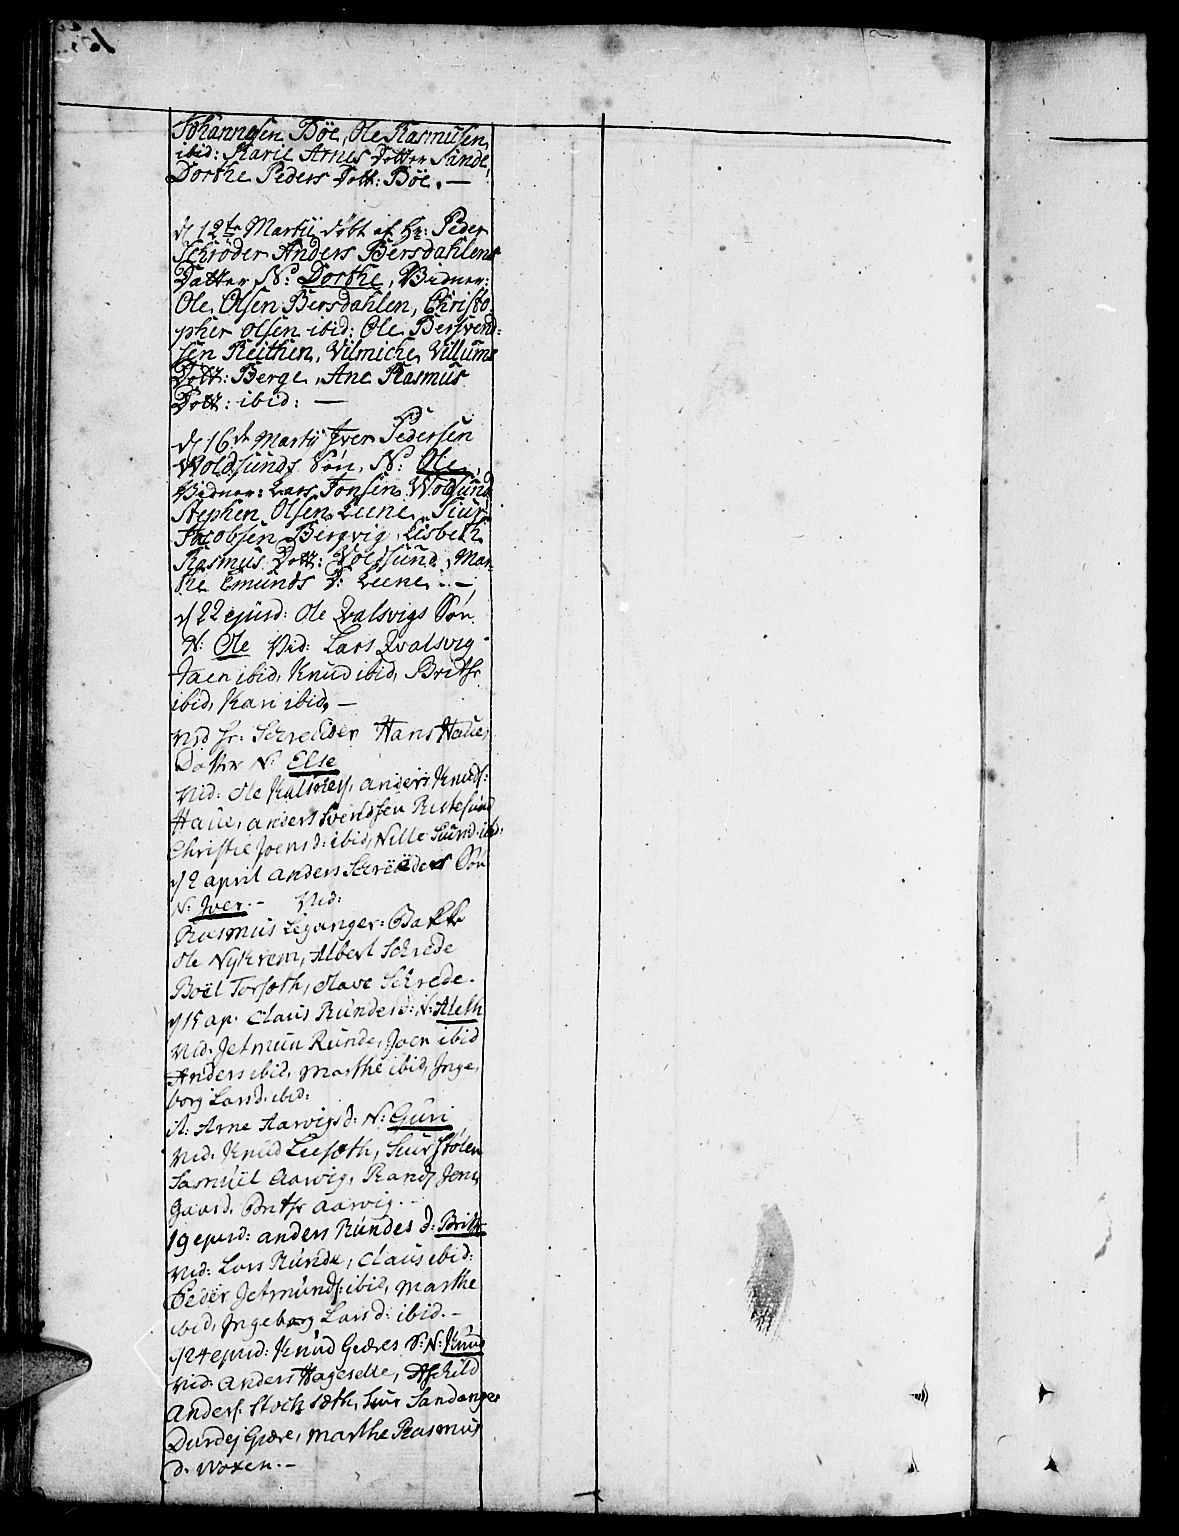 Johannesen Böe, Ole Rasmusen
ibid: Karie Arnes Dotter Sande,
Dorthe Peders Dott: Böe. —
d 12te Martii döbt af Hr: Peder
Schröder Anders Bersdahlens
Datter N: Dorthe, Vidner:
Ole Olsen Bersdahlen, Christo-
pher Olsen ibid: Ole Bersvend-
sen Reithen, Vilmiche Villums
Dott: Berge, Ane Rasmus
Dott: ibid: —
d 16de Martii Iver Pedersen
Woldsunds Sön, N: Ole,
Vidner: Lars Jonsen Woldsund
Stephen Olsen Leene, Siur
Jacobsen Bergvig, Lisbeth
Rasmus Dott: Voldsund, Mar-
the Emunds D: Leene. —
d 22 ejusd: Ole Qvalsvigs Sön
N: Ole Vid: Lars Qvalsvig
Jaen ibid, Knud ibid, Brithe
ibid, Kari ibid, —
Hans Haue,
Dotter N: Else
Vid: Ole anders Knuds:
Haue, anders Svendsen
Christie Joens d: ibid, Nille Sund ibid:
d 2 april anders Schröders Sön
N: Iver. — Vid:
Rasmus Leganger: Bakke
Ole Nykrem, Albert Schrede
Boël Torseth, Schrede.
d 15 ap. Claus Rundes d: N: Aleth
Vid. Jetmun Runde, Joen ibid
Anders ibid, Marthe ibid, Inge-
borg Lars d. ibid:
Arne Aarvigs d: N: Guri
Vid. Knud Siur Stölen
Samüel Aarvig, Rand Jens
Brithe Aarvig. —
19 ejusd: anders Rundes d: Brithe
Vid: Lars Runde, Claus ibid:
Peder Jetmunds: ibid, Marthe
ibid, Ingeborg Lars d: ibid. —
d 24 ejusd: Knud Giæres S: N: Knud
Vid: Anders Hageselle,
Anders. Siur Sandanger
Giære, Marthe Rasmus
d. Woxen. —